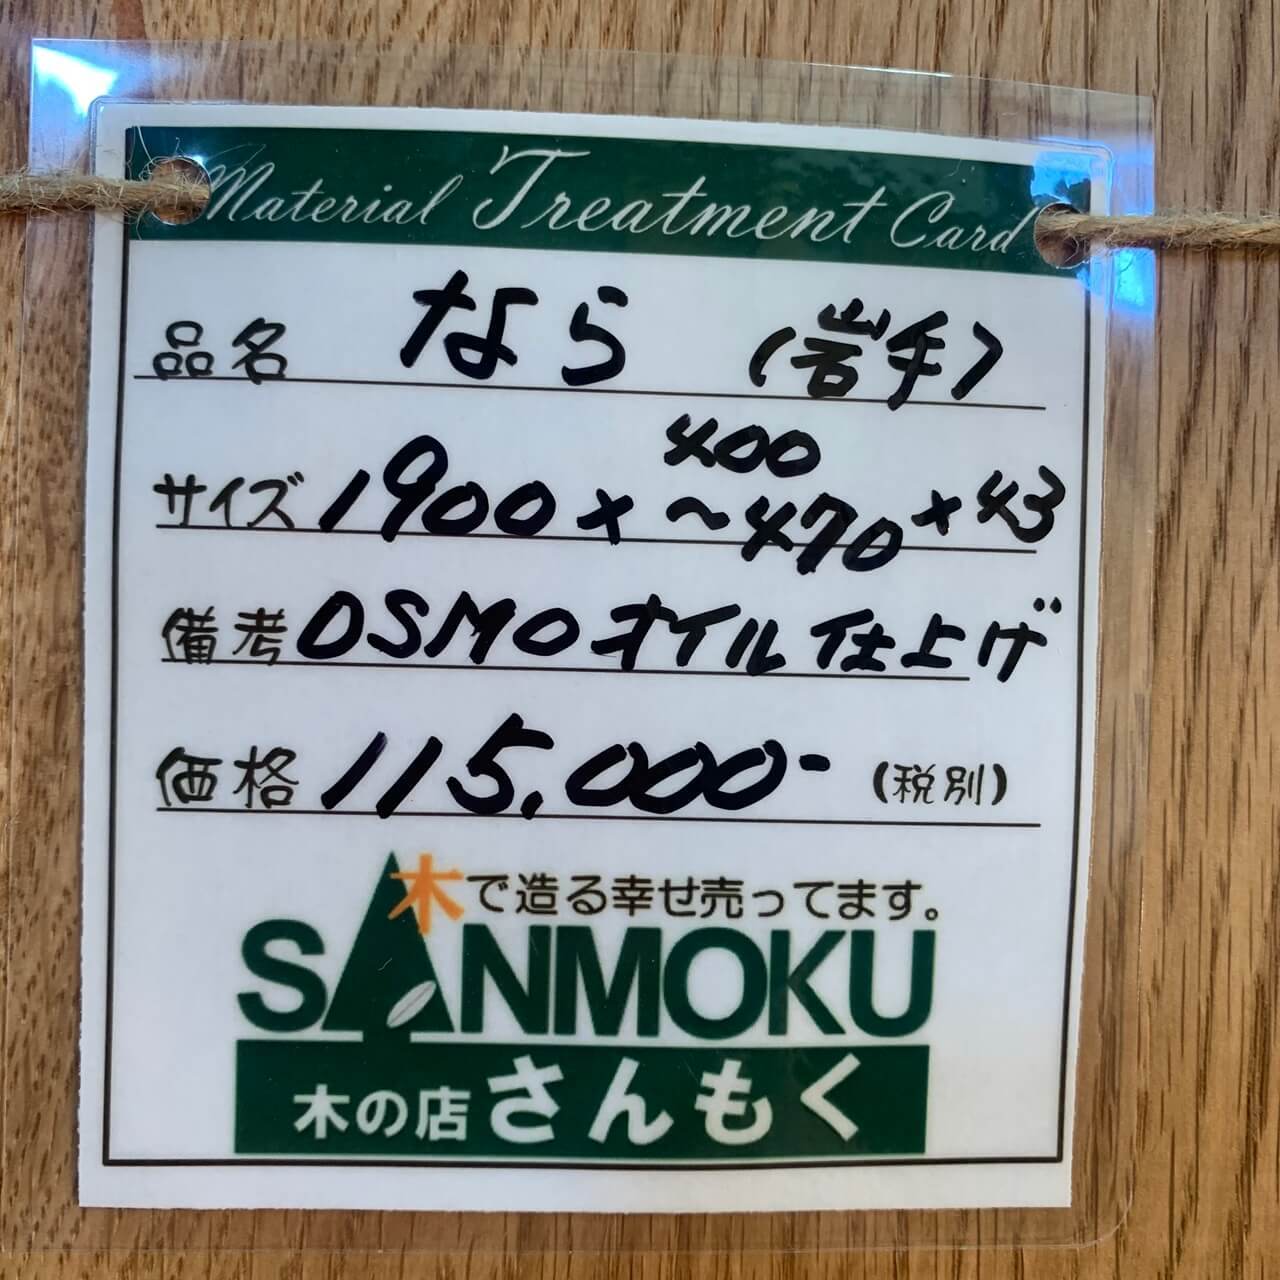 Material Treatment Card
品名 なら (岩手)
サイズ 1900 × 400 ~470 × 43
備考 OSMO オイル 仕上げ
価格 115,000- (税別)
木で造る幸せ売ってます。
SANMOKU
木の店 さんもく